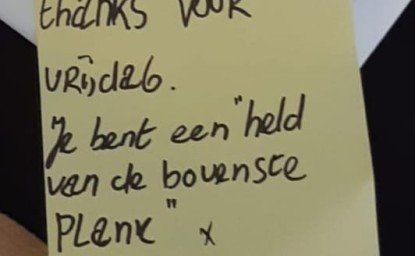 thanks voor
vrijdag.
Je bent een "held
van de bovenste
plank" x